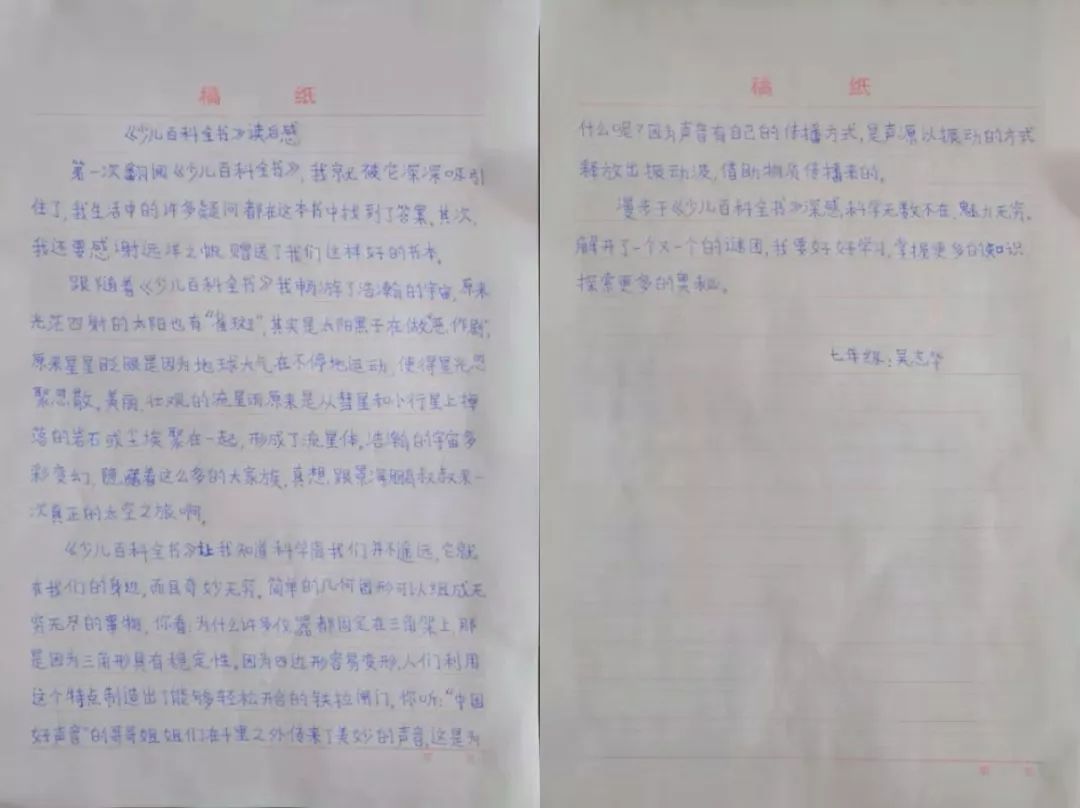 稿 纸
《少儿百科全书》读后感
第一次翻阅《少儿百科全书》,我就被它深深吸引
住了,我生活中的许多疑问都在这本书中找到了答案,其次,
我还要感谢远洋之帆赠送了我们这样好的书本。
跟随着《少儿百科全书》我畅游了浩瀚的宇宙,原来
光芒四射的太阳也有“雀斑”,其实是太阳黑子在做“恶作剧”,
原来星星眨眼是因为地球大气在不停地运动,使得星光忽
聚忽散,美丽壮观的流星雨原来是从彗星和小行星上掉
落的岩石或尘埃聚在一起,形成了流星体,浩瀚的宇宙多
彩变幻,隐藏着这么多的大家族,真想跟景海鹏叔叔来一
次真正的太空之旅啊。
《少儿百科全书》让我知道科学离我们并不遥远,它就
在我们的身边,而且奇妙无穷,简单的几何图形可以组成无
穷无尽的事物,你看:为什么许多仪器都固定在三角架上,那
是因为三角形具有稳定性,因为四边形容易变形,人们利用
这个特点制造出了能够轻松开合的铁拉闸门,你听:“中国
好声音”的哥哥姐姐们在千里之外传来了美妙的声音,这是为
稿 纸
什么呢?因为声音有自己的传播方式,是声源以振动的方式
释放出振动波,借助物质传播来的。
漫步于《少儿百科全书》深感科学无数不在,魅力无穷,
解开了一个又一个的谜团,我要好好学习,掌握更多的知识,
探索更多的奥秘。
七年级:吴志华